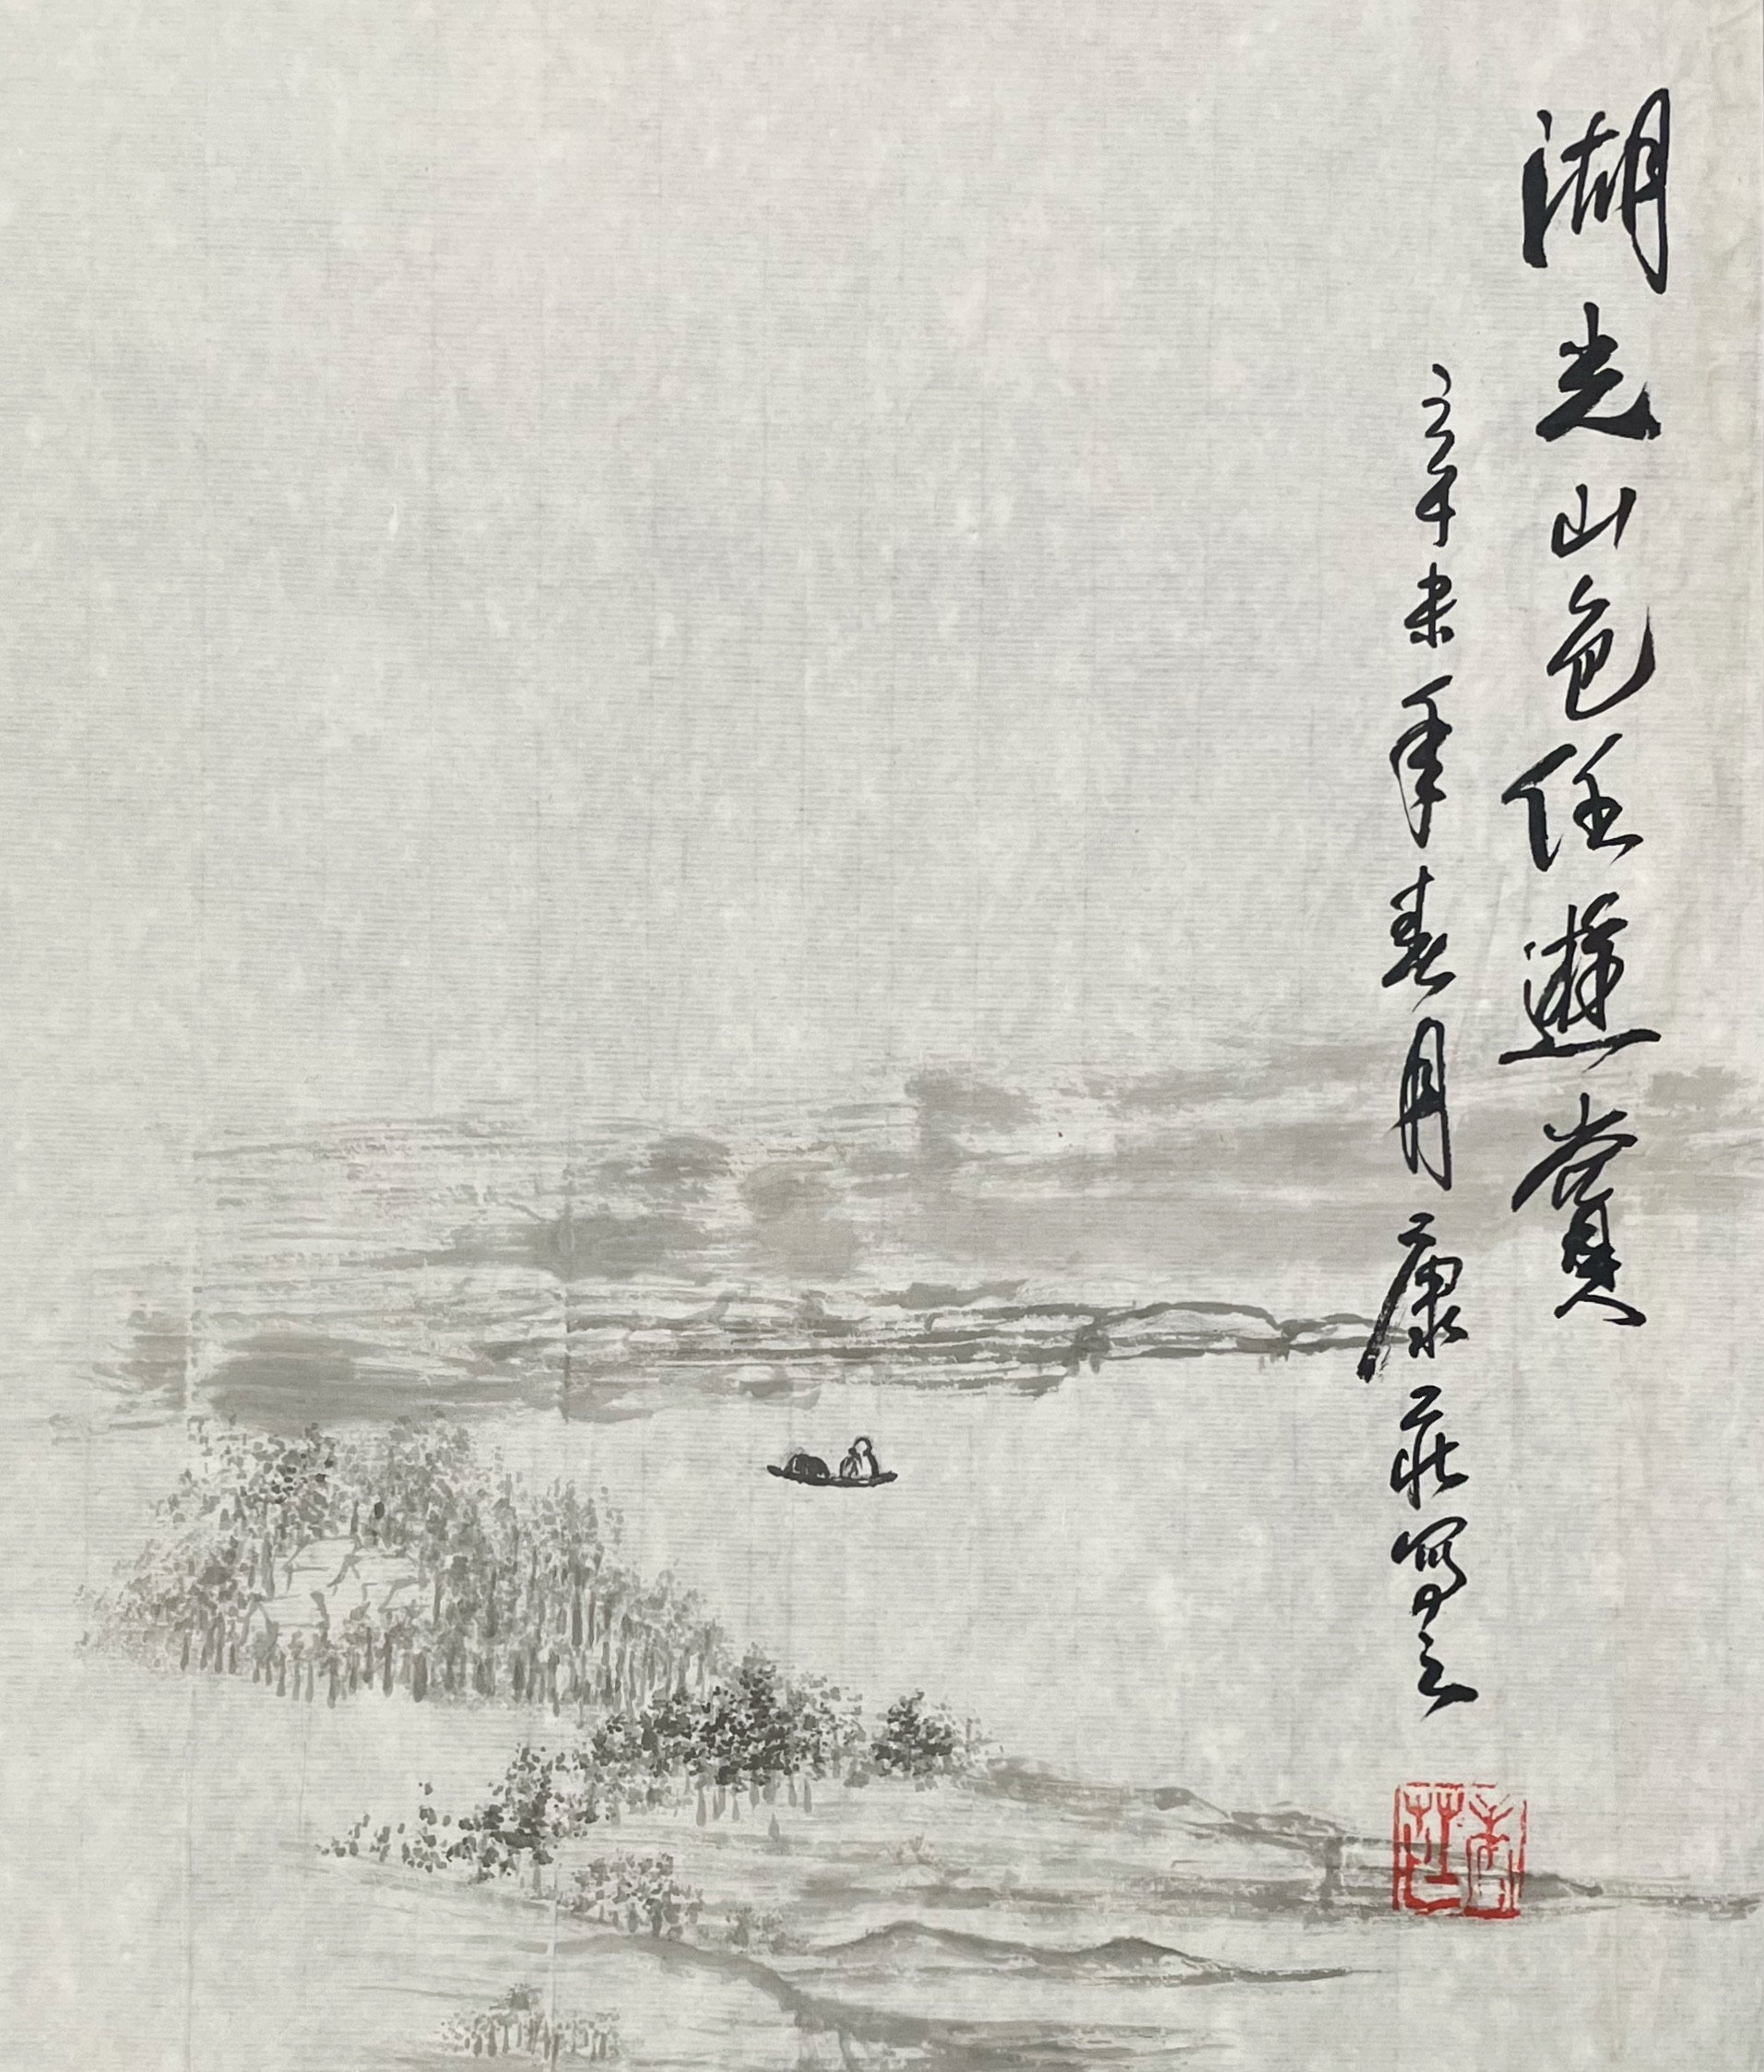 湖光山色任遊賞
辛未年春月康莊寫之